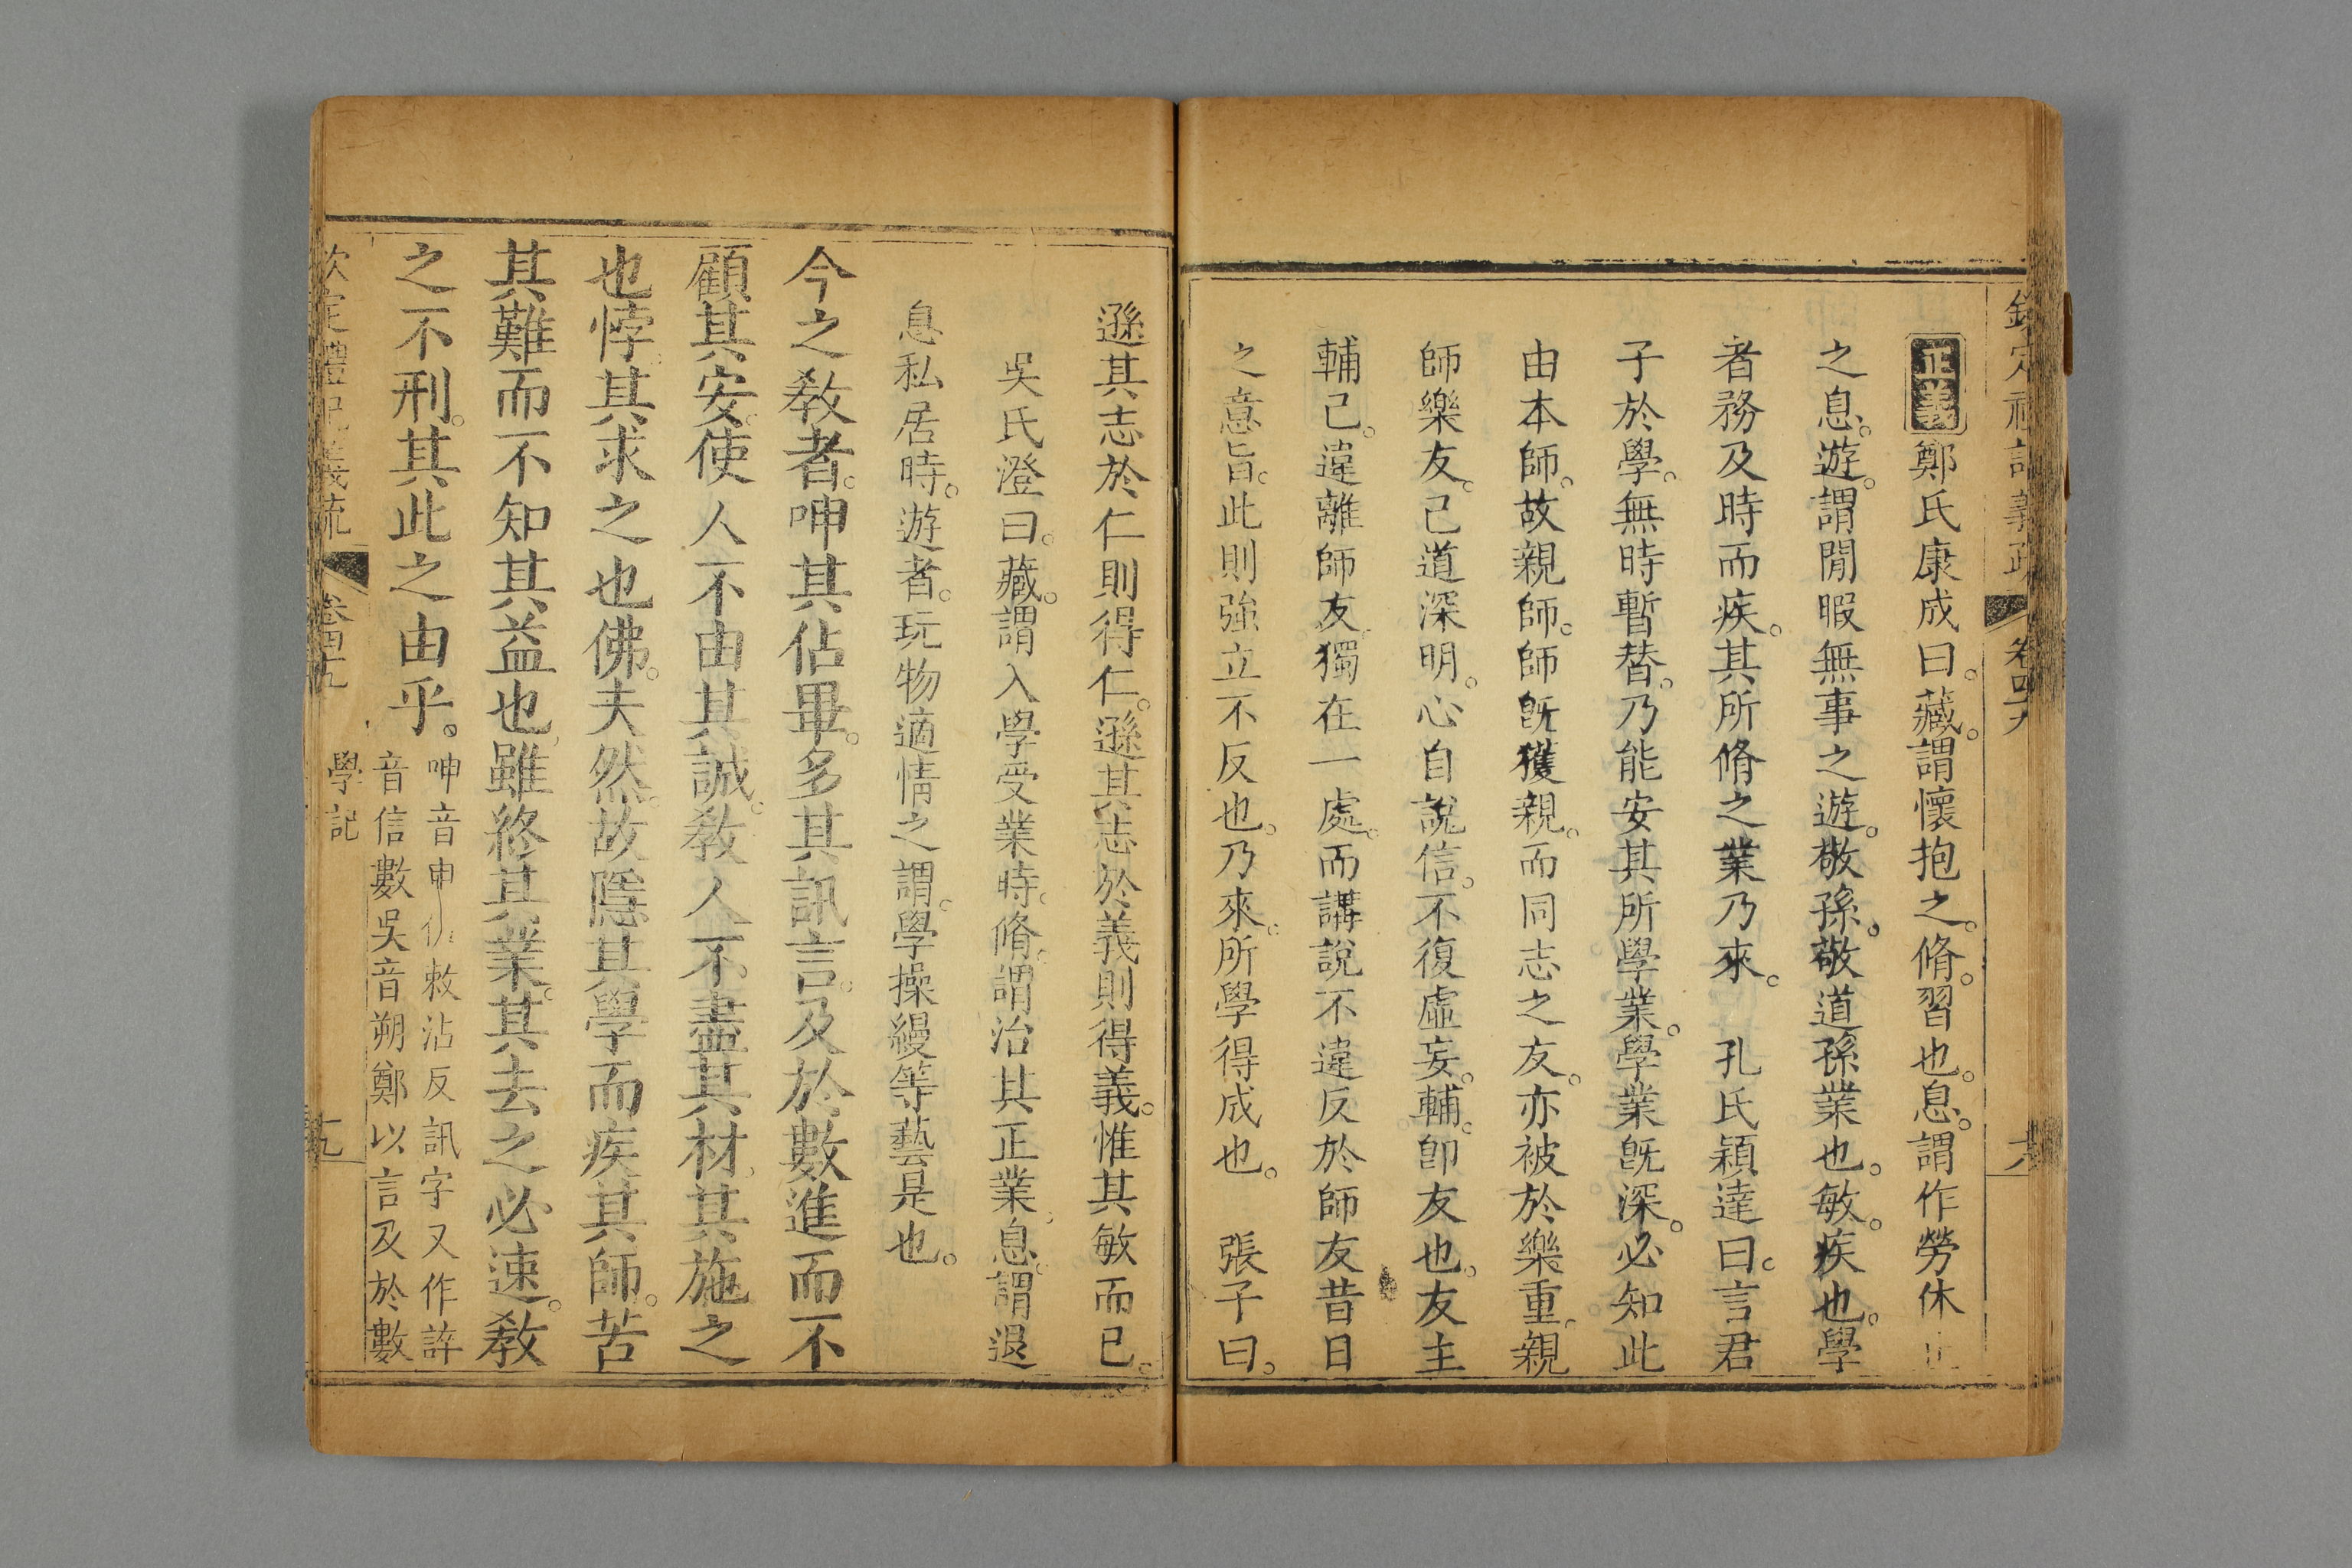 欽定禮記義疏 卷四十六 六
正義鄭氏康成曰。藏。謂懷抱之。脩。習也。息。謂作勞休止
之息。遊。謂閒暇無事之遊。敬孫。敬道孫業也。敏。疾也。學
者務及時而疾。其所脩之業乃來。 孔氏穎達曰。言君
子於學。無時暫替。乃能安其所學業。學業旣深。必知此
由本師。故親師。師旣獲親。而同志之友。亦被於樂重。親
師樂友。己道深明。心自說信。不復虛妄。輔。卽友也。友主
輔己。違離師友獨在一處。而講說不違反於師友昔日
之意旨。此則強立不反也。乃來。所學得成也。 張子曰。
遜其志於仁則得仁。遜其志於義則得義。惟其敏而已。
吳氏澄曰。藏。謂入學受業時。脩。謂治其正業。息。謂退
息私居時。遊者。玩物適情之謂。學操縵等藝是也。
今之敎者。呻其佔畢。多其訊言。及於數進而不
顧其安。使人不由其誠。敎人不盡其材。其施之
也悖。其求之也佛。夫然。故隱其學而疾其師。苦
其難而不知其益也。雖終其業。其去之必速。敎
之不刑。其此之由乎。
呻音申佔敕沾反訊字又作誶
音信數吳音朔鄭以言及於數
欽定禮記義疏 學記